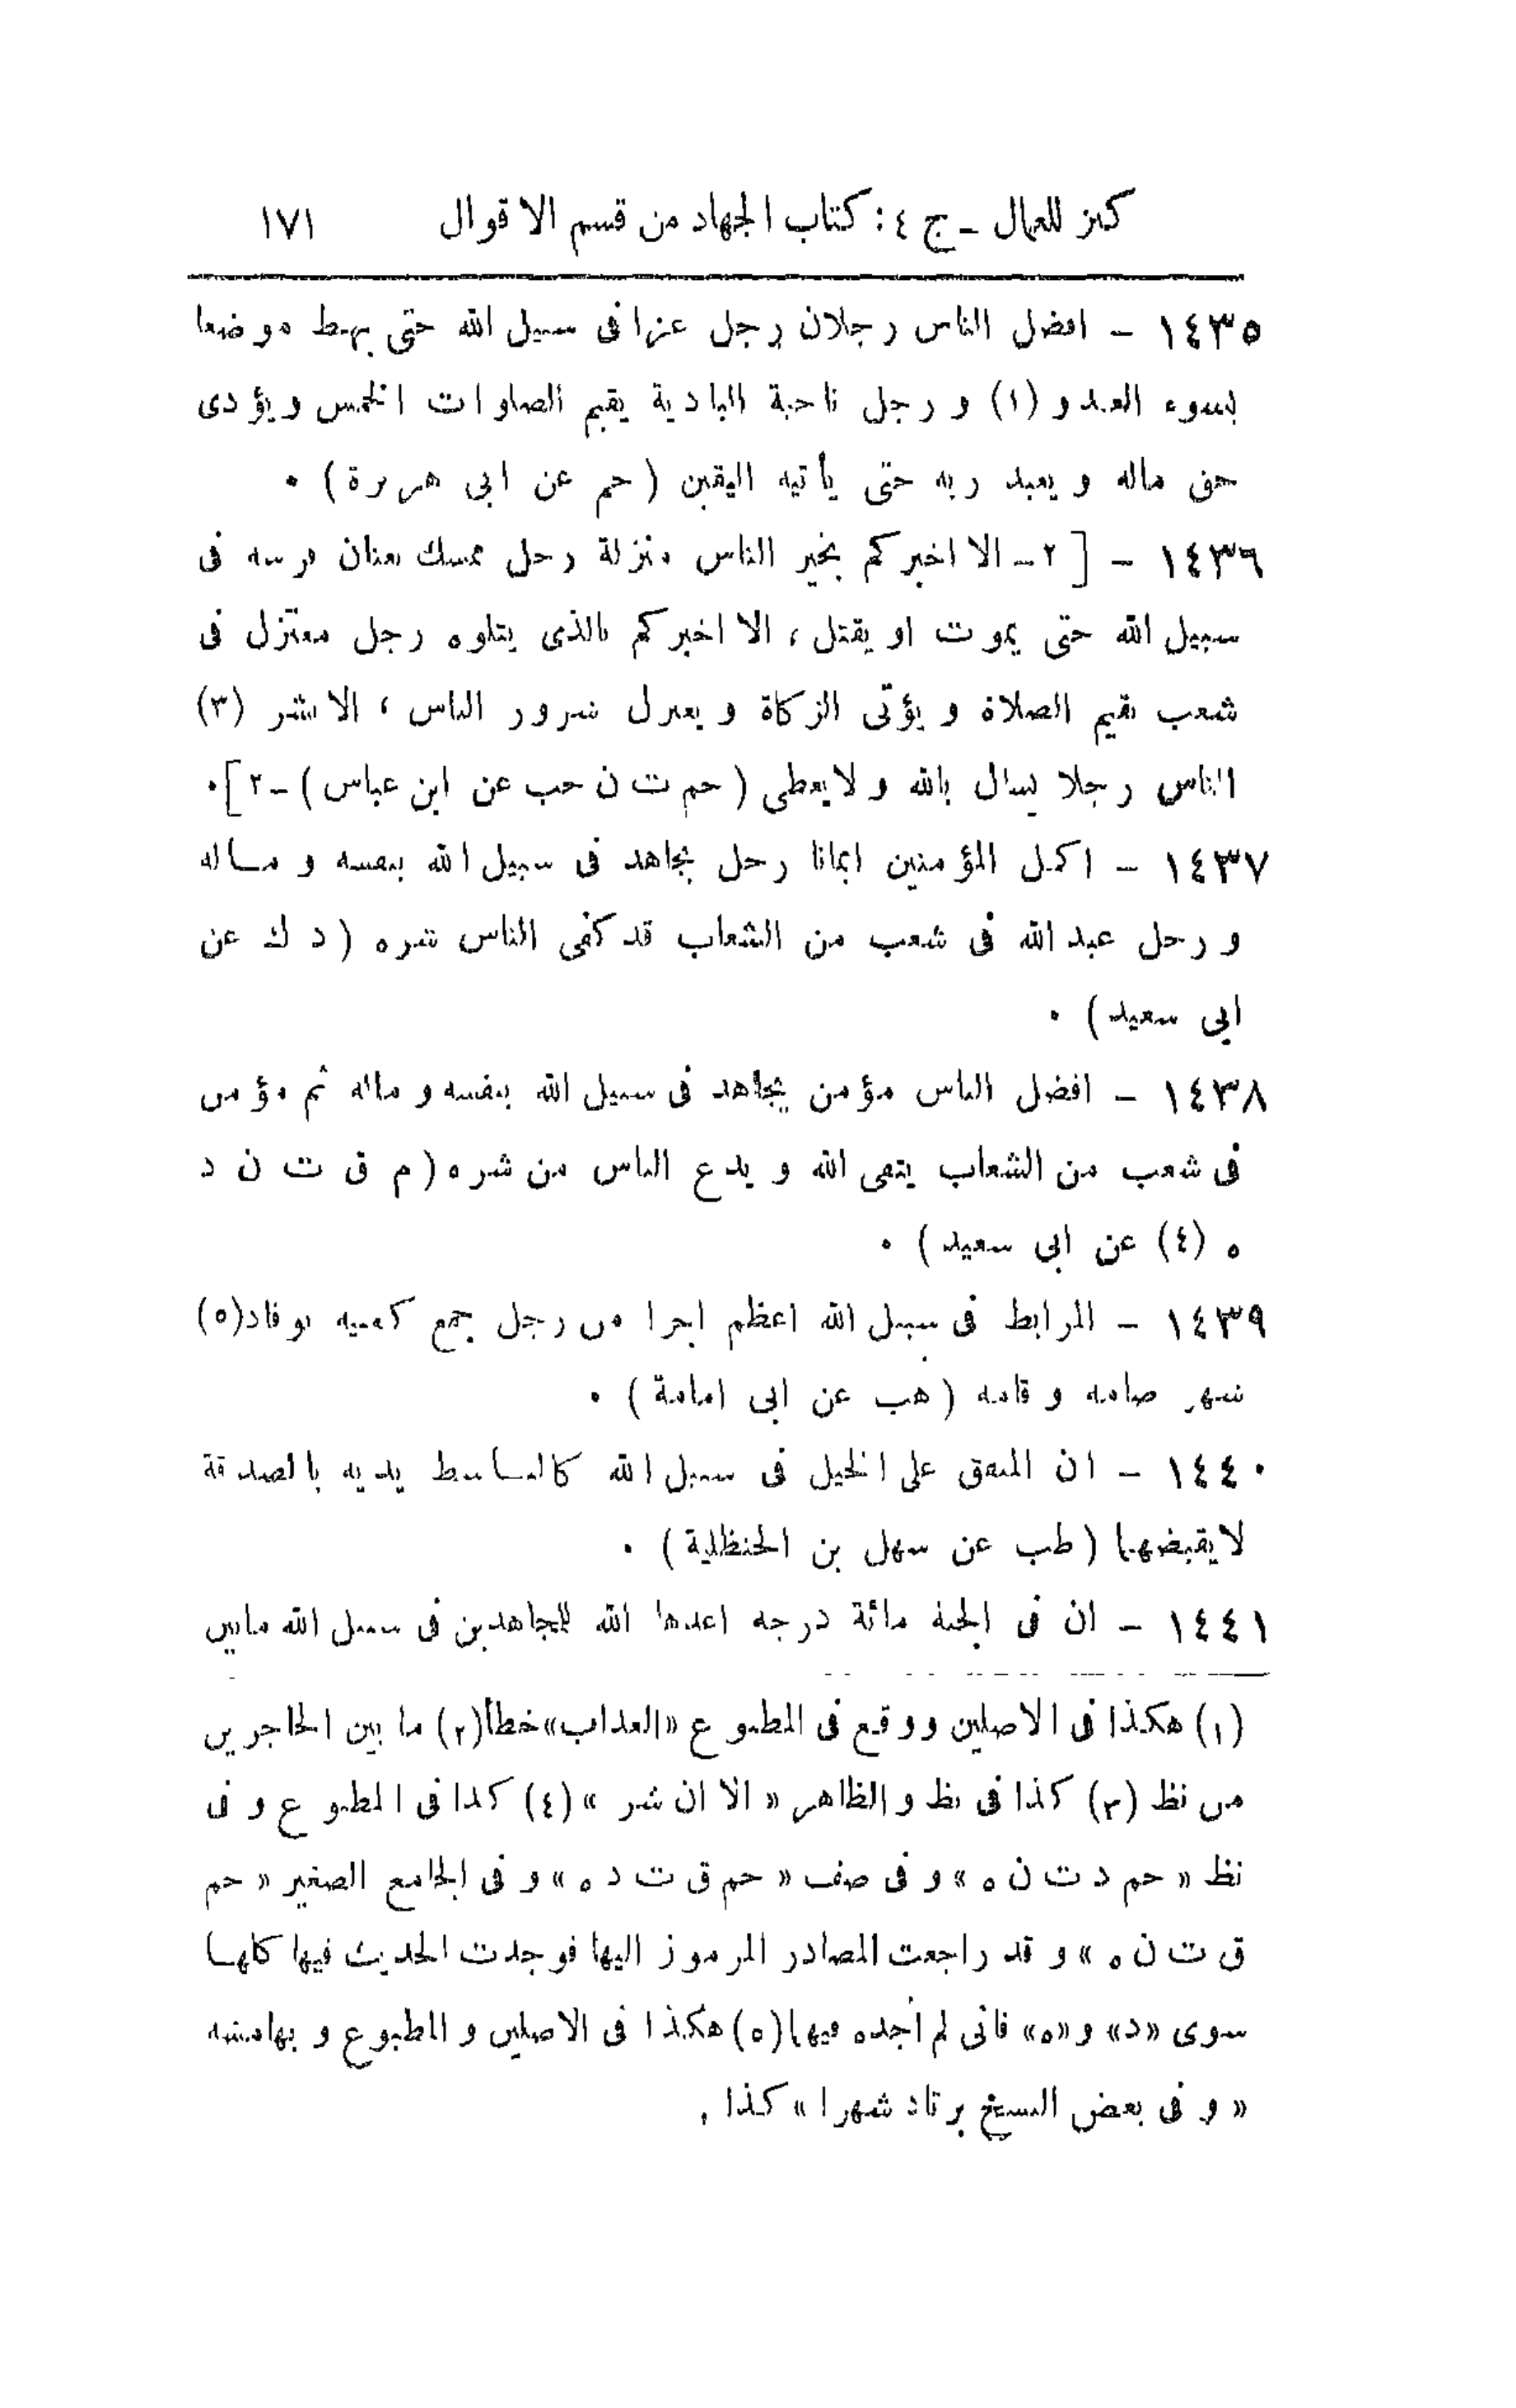 كنز العمال ـ ج ٤ : كتاب الجهاد من قسم الاقوال ١٧١
١٤٣٥ – افضل الناس رجلان رجل غزا فى سبيل الله حتى يهبط موضعا
يسوء العدو (١) و رجل ناحية البادية يقيم الصلوات الخمس ويؤدى
حق ماله و يعبد ربه حتى يأتيه اليقين ( حم عن ابى هريرة ) ٠
١٤٣٦ – [ ٢ ـ الا اخبركم بخير الناس منزلة رجل ممسك بعنان فرسه فى
سبيل الله حتى يموت او يقتل ، الا اخبركم بالذى يتلوه رجل معتزل فى
شعب يقيم الصلاة و يؤتى الزكاة و يعتزل شرور الناس ، الا بشر (٣)
الناس رجلا يسأل بالله و لايعطى ( حم ت ن حب عن ابن عباس ) ـ ٢ ]٠
١٤٣٧ – اكمل المؤمنين ايمانا رجل يجاهد فى سبيل الله بنفسه و مـاله
و رجل عبد الله فى شعب من الشعاب قد كفى الناس شره ( د ك عن
ابى سعيد ) ٠
١٤٣٨ – افضل الناس مؤمن يجاهد فى سبيل الله بنفسه و ماله ثم مؤمن
فى شعب من الشعاب يتقى الله و يدع الناس من شره ( م ق ت ن د
ه (٤) عن ابى سعيد ) ٠
١٤٣٩ – المرابط فى سبيل الله اعظم اجرا من رجل جمع كعبيه بوقاد(٥)
شهر صامه و قامه ( هب عن ابى امامة ) ٠
١٤٤٠ – ان المنفق على الخيل فى سبيل الله كالبـاسط يديه بالصدقة
لايقبضهـا ( طب عن سهل بن الحنظلية ) ٠
١٤٤١ – ان فى الجنة مائة درجه اعدها الله للمجاهدين فى سبيل الله مابين
(١) هكذا فى الاصلين ووقع فى المطبوع «العذاب» خطأ (٢) ما بين الحاجزين
من نظ (٣) كذا فى نظ و الظاهر « الا ان شر » (٤) كذا فى المطبوع و فى
نظ « حم د ت ن ه » و فى صف « حم ق ت د ه » و فى الجامع الصغير « حم
ق ت ن ه » و قد راجعت المصادر المرموز اليها فوجدت الحديث فيها كلهـا
سوى «د» و «ه» فانى لم أجده فيها (٥) هكذا فى الاصلين و المطبوع و بهامشه
« و فى بعض النسخ يرتاد شهرا » كذا .